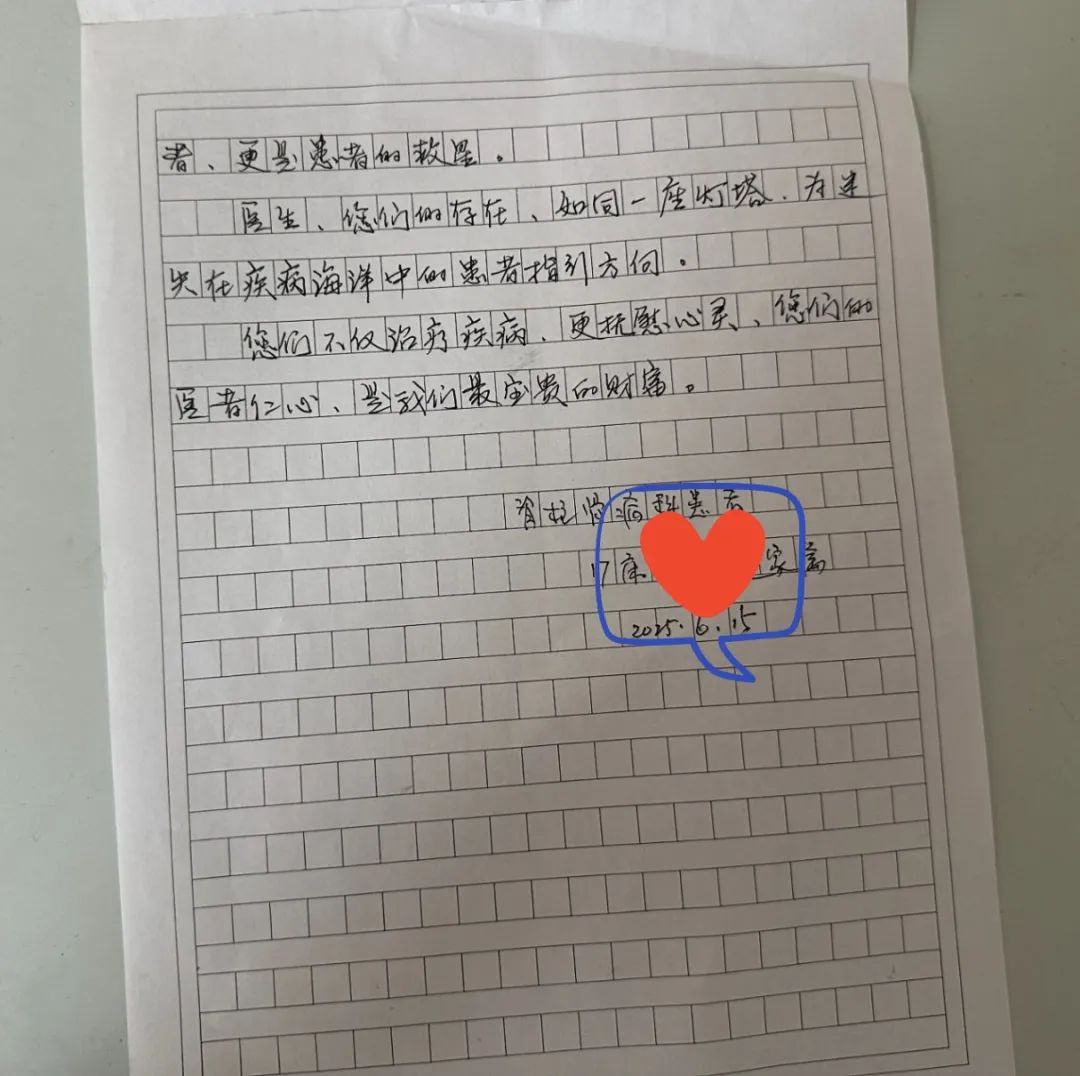 者、更是患者的救星。
医生、您们的存在、如同一座灯塔.为迷
失在疾病海洋中的患者指引方向。
您们不仅治疗疾病、更抚慰心灵、您们的
医者仁心、是我们最宝贵的财富。
脊柱肾病科患者
17床 家属
2025.6.15